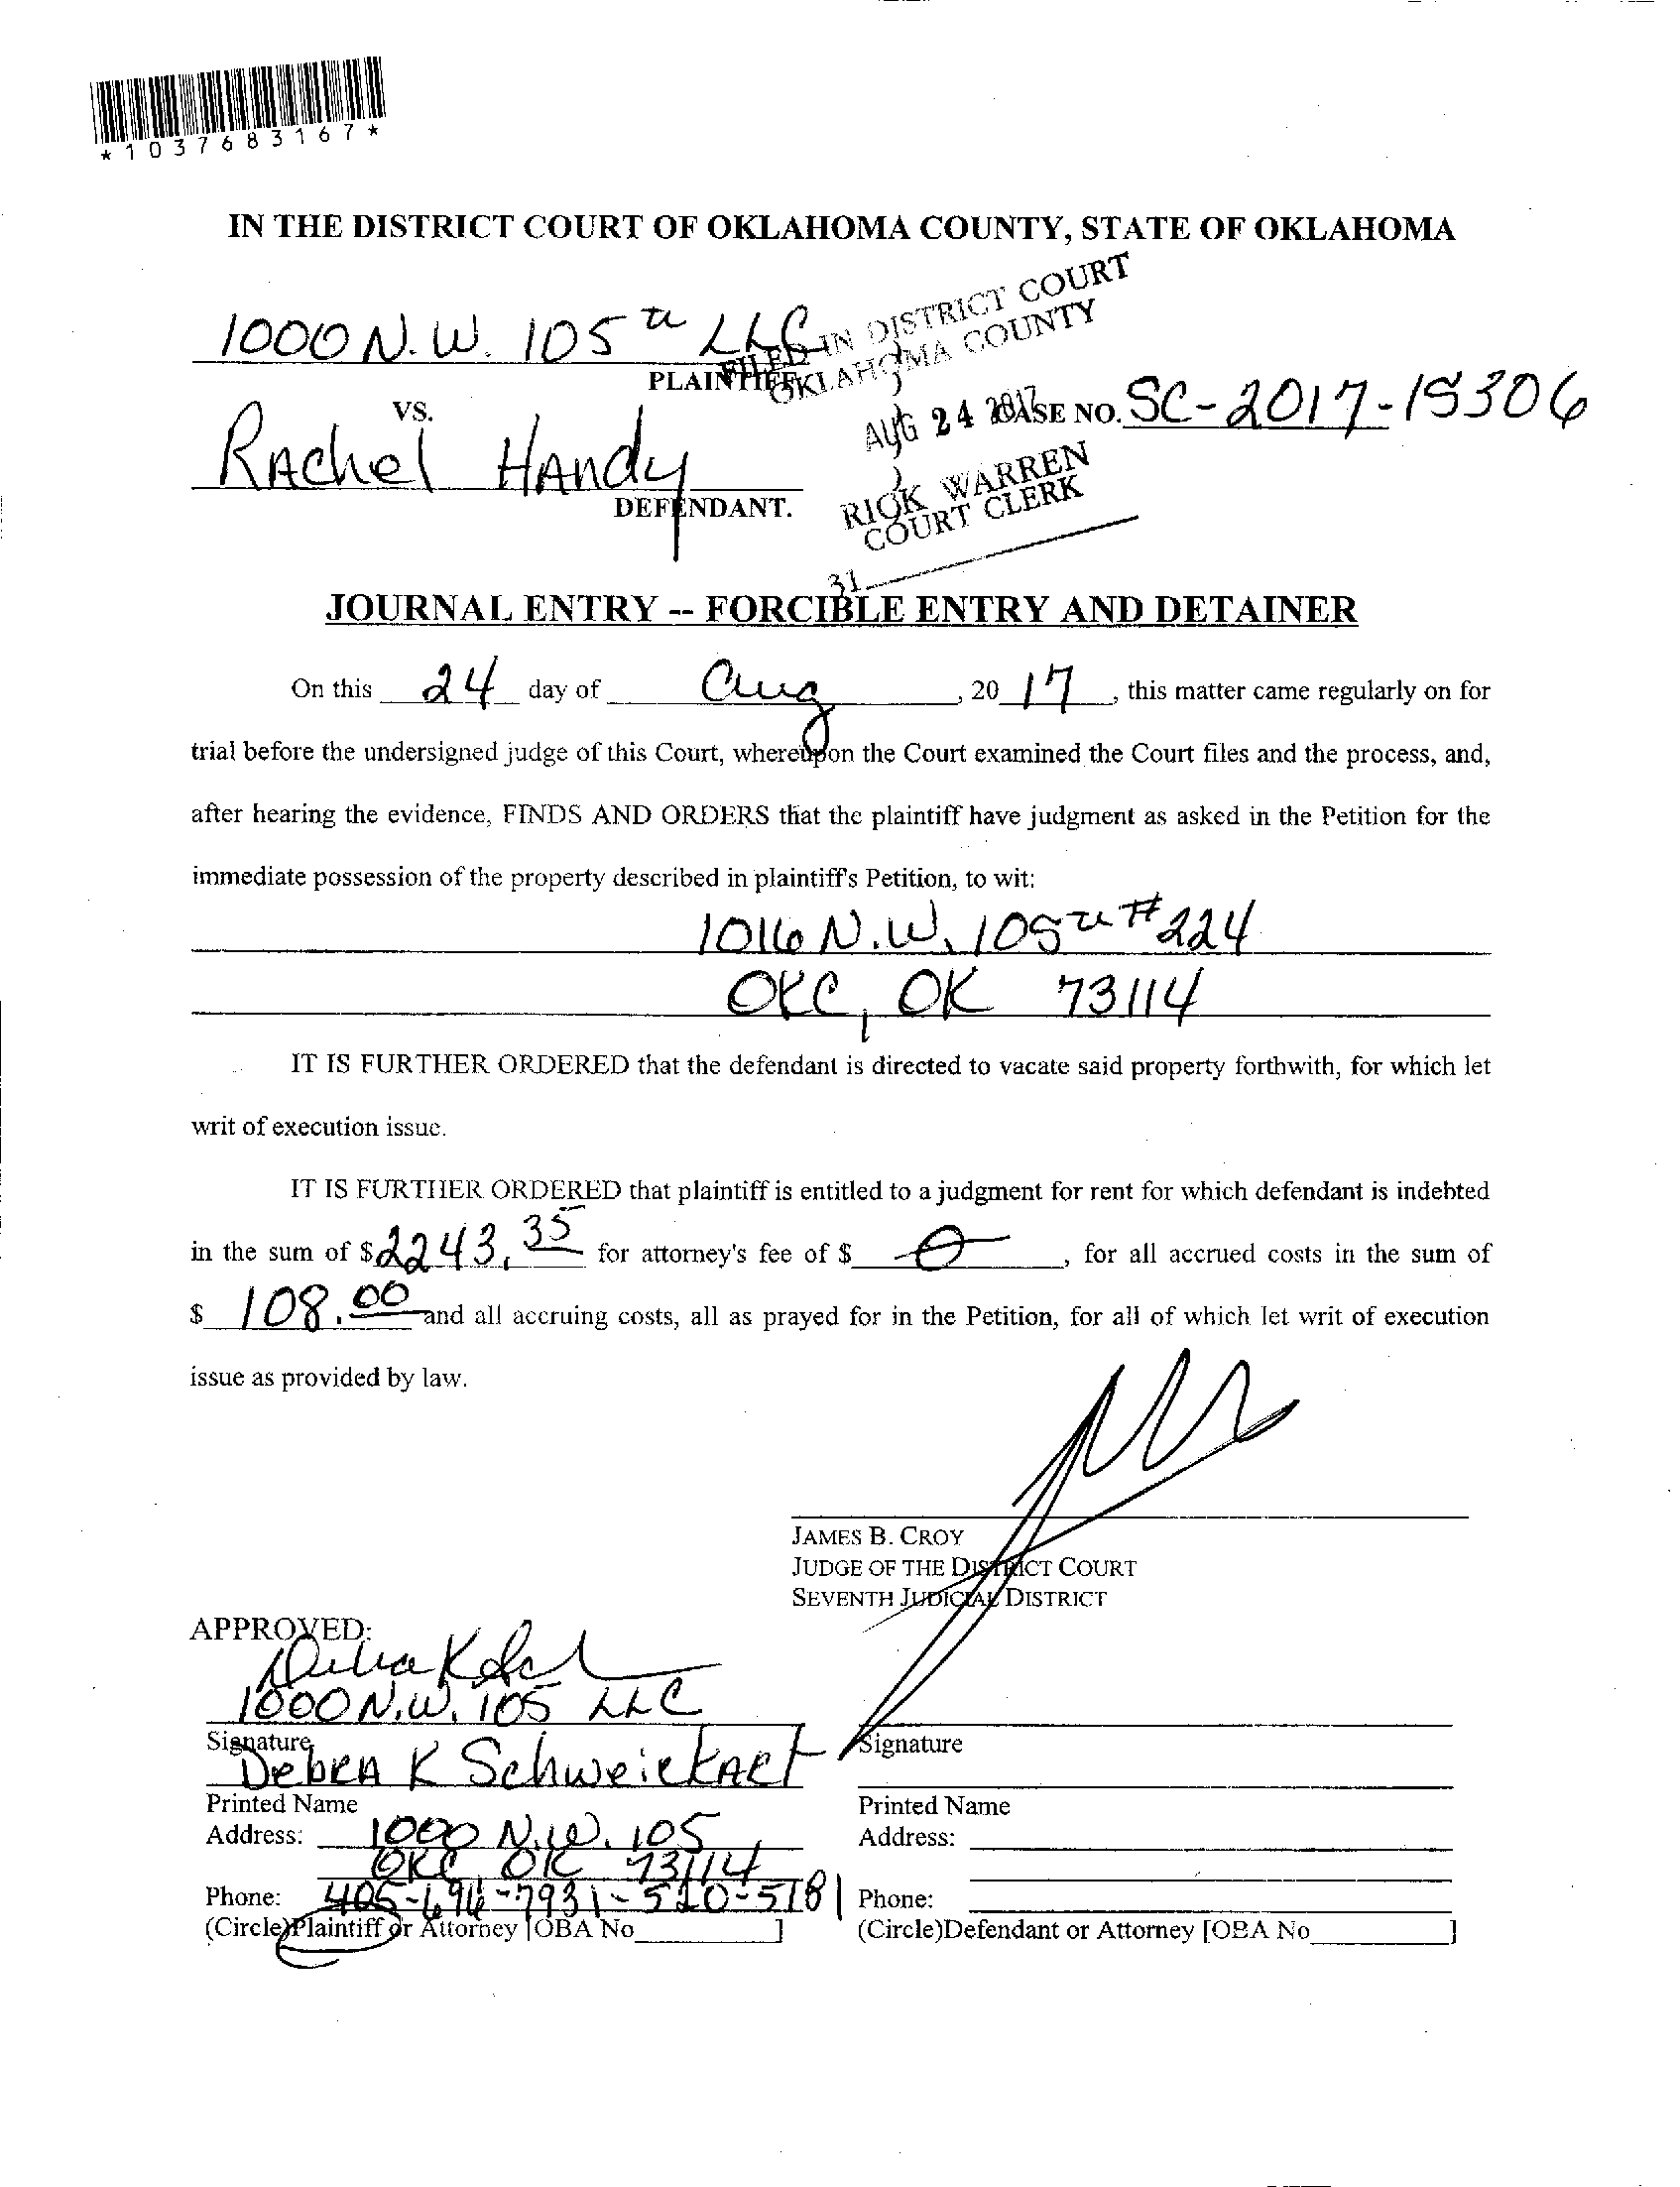 *1037683167*
IN THE DISTRICT COURT OF OKLAHOMA COUNTY, STATE OF OKLAHOMA
1000 N.W. 105th LLC
PLAINTIFF
FILED IN DISTRICT COURT
OKLAHOMA COUNTY
VS.
AUG 24 2017
CASE NO. SC-2017-15306
Rachel Handy
DEFENDANT.
RICK WARREN
COURT CLERK
31
JOURNAL ENTRY -- FORCIBLE ENTRY AND DETAINER
On this 24 day of Aug, 20 17, this matter came regularly on for
trial before the undersigned judge of this Court, whereupon the Court examined the Court files and the process, and,
after hearing the evidence, FINDS AND ORDERS that the plaintiff have judgment as asked in the Petition for the
immediate possession of the property described in plaintiff's Petition, to wit:
1016 N.W. 105th #224
OKC, OK 73114
IT IS FURTHER ORDERED that the defendant is directed to vacate said property forthwith, for which let
writ of execution issue.
IT IS FURTHER ORDERED that plaintiff is entitled to a judgment for rent for which defendant is indebted
in the sum of $2243.35 for attorney's fee of $ 0, for all accrued costs in the sum of
$ 108.00 and all accruing costs, all as prayed for in the Petition, for all of which let writ of execution
issue as provided by law.
JAMES B. CROY
JUDGE OF THE DISTRICT COURT
SEVENTH JUDICIAL DISTRICT
APPROVED:
1000 N.W. 105 LLC
Signature
Signature
Debra K Schweickart
Printed Name
Printed Name
Address: 1000 N.W. 105
Address:
OKC OK 73114
Phone: 405-            
Phone:
(Circle)Plaintiff or Attorney [OBA No ]
(Circle)Defendant or Attorney [OBA No ]